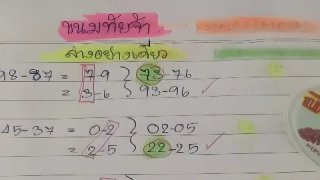 ขนมทัยจ้า
ล่างอย่างเดียว
98-87 = 7-9 } 73-76
= 3-6 } 93-96
45-37 = 0-2 } 02-05
= 2-5 } 22-25